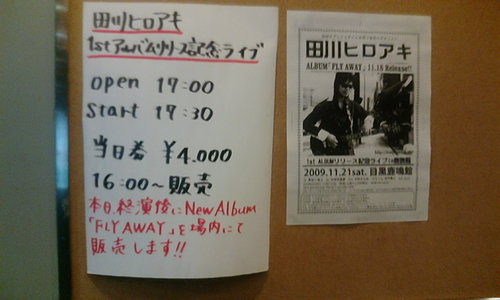 田川ヒロアキ
1stアルバムリリース記念ライブ
open 17:00
Start 17:30
当日券 ¥4.000
16:00〜販売
本日、終演後にNew Album
「FLY AWAY」を場内にて
販売します!!
田川ヒロアキ
ALBUM「FLY AWAY」11.18 Release!!
1st ALBUMリリース記念ライブ@鹿鳴館
2009.11.21sat. 目黒鹿鳴館